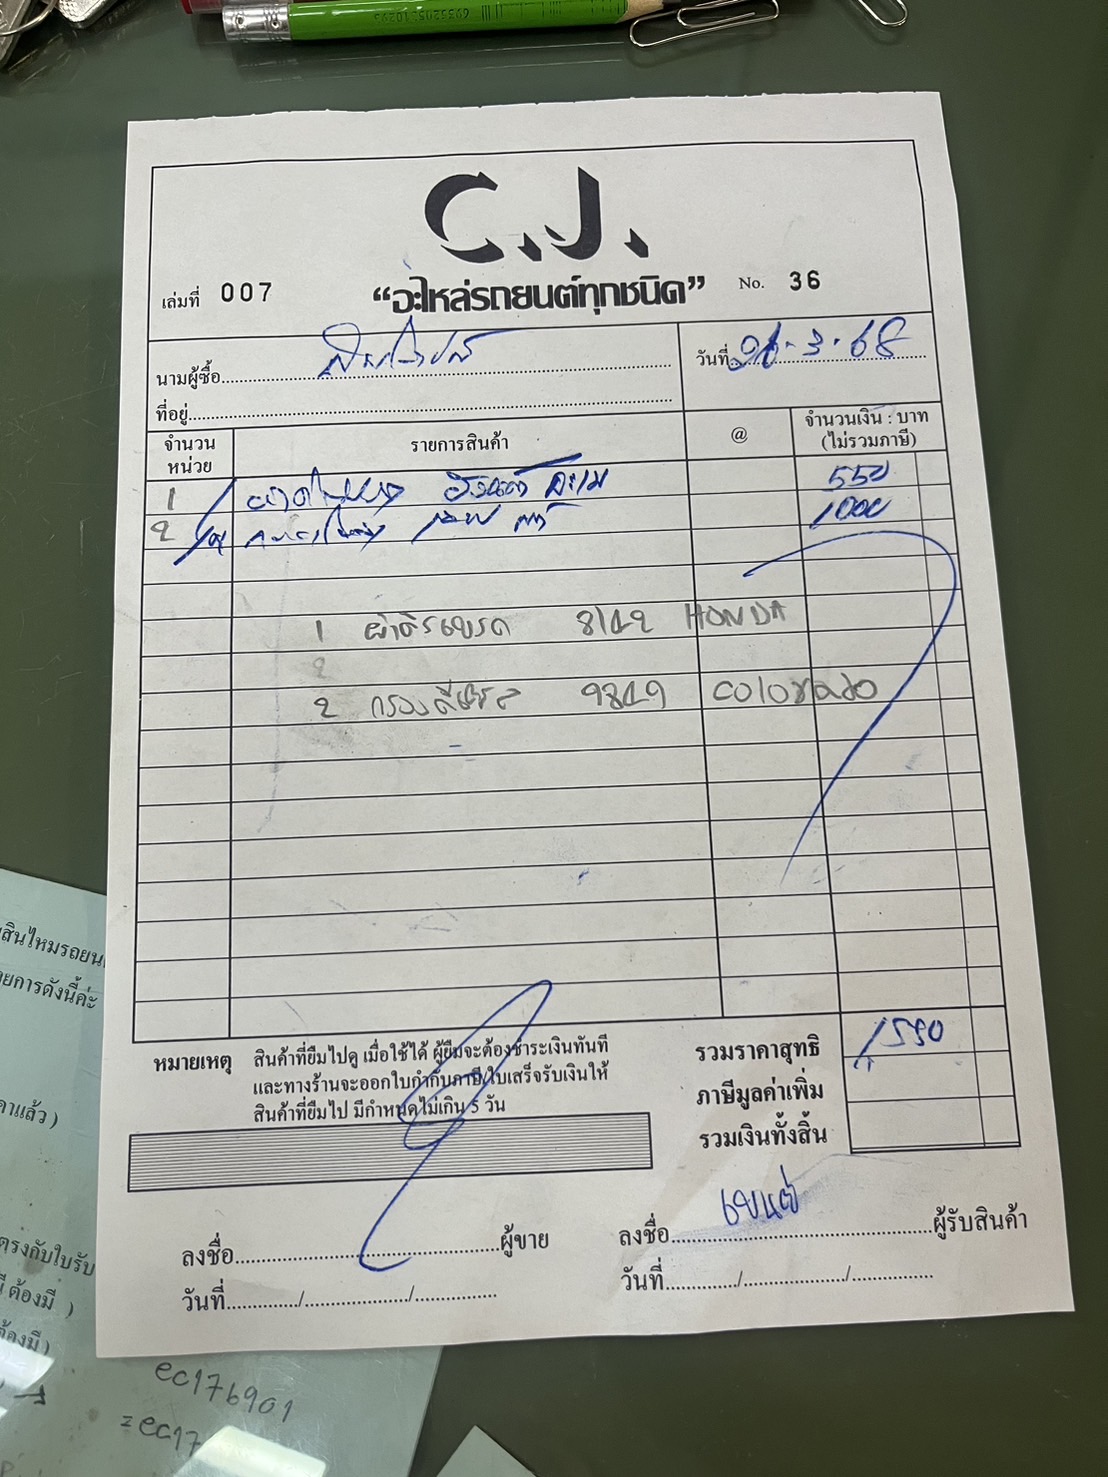 6933205 10293
C.J.
เล่มที่ 007
“อะไหล่รถยนต์ทุกชนิด”
No. 36
นามผู้ซื้อ
วันที่ 26-3-68
ที่อยู่
จำนวนหน่วย รายการสินค้า @ จำนวนเงิน : บาท (ไม่รวมภาษี)
1 550
2 1000
1 ผ้าดิสเบรค HONDA
2
2 กรองดีเซล colorado
หมายเหตุ สินค้าที่ยืมไปดู เมื่อใช้ได้ ผู้ยืมจะต้องชำระเงินทันที
และทางร้านจะออกใบกำกับภาษี/ใบเสร็จรับเงินให้
สินค้าที่ยืมไป มีกำหนดไม่เกิน 5 วัน
รวมราคาสุทธิ 1550
ภาษีมูลค่าเพิ่ม
รวมเงินทั้งสิ้น
ลงชื่อ ผู้ขาย
ลงชื่อ ผู้รับสินค้า
วันที่ / /
วันที่ / /
สินไหมรถยน
ยการดังนี้ค่ะ
าแล้ว )
ตรงกับใบรับ
ต้องมี )
ต้องมี )
ec176901
=ec17